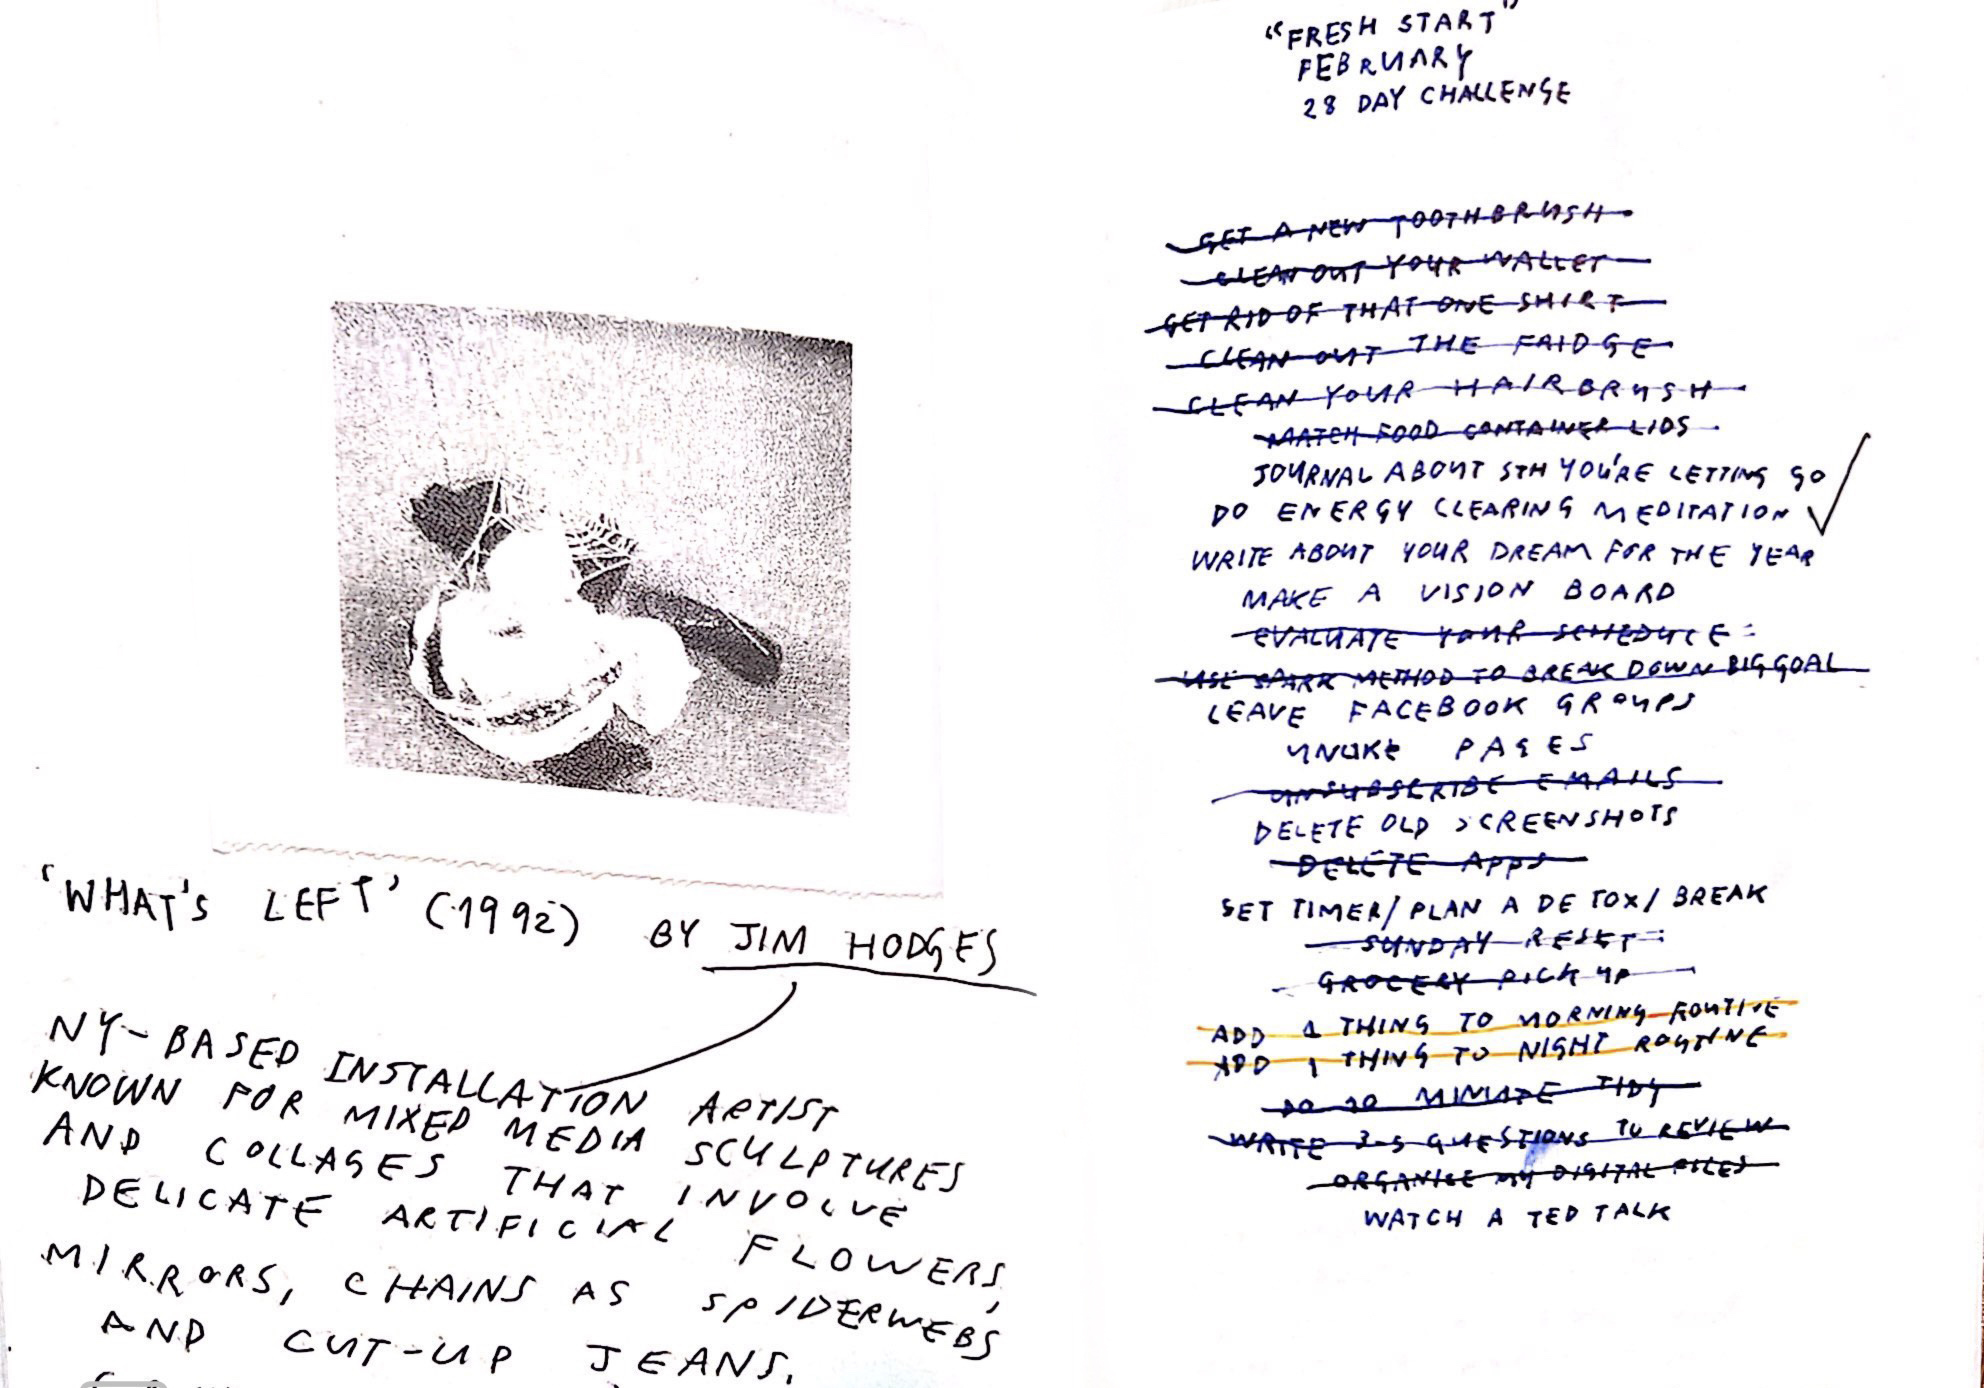 'WHAT'S LEFT' (1992) BY JIM HODGES
NY-BASED INSTALLATION ARTIST
KNOWN FOR MIXED MEDIA SCULPTURES
AND COLLAGES THAT INVOLVE
DELICATE ARTIFICIAL FLOWERS,
MIRRORS, CHAINS AS SPIDERWEBS
AND CUT-UP JEANS.
"FRESH START"
FEBRUARY
28 DAY CHALLENGE
GET A NEW TOOTHBRUSH
CLEAN OUT YOUR WALLET
GET RID OF THAT ONE SHIRT
CLEAN OUT THE FRIDGE
CLEAN YOUR HAIRBRUSH
MATCH FOOD CONTAINER LIDS
JOURNAL ABOUT STH YOU'RE LETTING GO
DO ENERGY CLEARING MEDITATION
WRITE ABOUT YOUR DREAM FOR THE YEAR
MAKE A VISION BOARD
EVALUATE YOUR SCHEDULE
USE SPARK METHOD TO BREAK DOWN BIG GOAL
LEAVE FACEBOOK GROUPS
UNLIKE PAGES
UNSUBSCRIBE EMAILS
DELETE OLD SCREENSHOTS
DELETE APPS
SET TIMER/PLAN A DETOX/BREAK
SUNDAY RESET
GROCERY PICK UP
ADD 1 THING TO MORNING ROUTINE
ADD 1 THING TO NIGHT ROUTINE
DO 20 MINUTE TIDY
WRITE 3-5 QUESTIONS TO REVIEW
ORGANISE MY DIGITAL FILES
WATCH A TED TALK